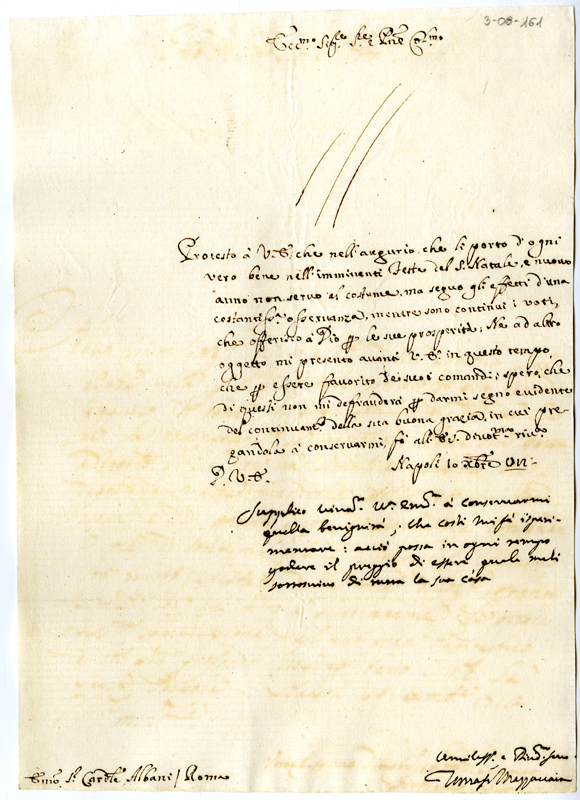 3-08-161
Protesto à V. S. che nell'augurio, che li porto d'ogni
vero bene nell'imminenti feste del S. Natale, e nuovo
anno non servo al costume, ma seguo gli effetti d'una
costantiss.ª osservanza, mentre sono continui i voti,
che offerisco à Dio p le sue prosperità; Ne ad altro
oggetto mi presento avanti V. S. in questo tempo,
che p essere favorito de suoi comandi; spero, che
di questi non mi defrauderà p darmi segno evidente
del continuant.º della sua buona grazia, in cui pre-
gandola à conservarmi, fò all'
D. V. S. Napoli 10 Xbre
Supplico à conservarmi
quella benignità, che così mi fà speri-
mentare: acciò possa in ogni tempo
godere il preggio di essere quale mi
sottoscrivo di tutta la sua casa
Sr. Card.le Albani / Roma